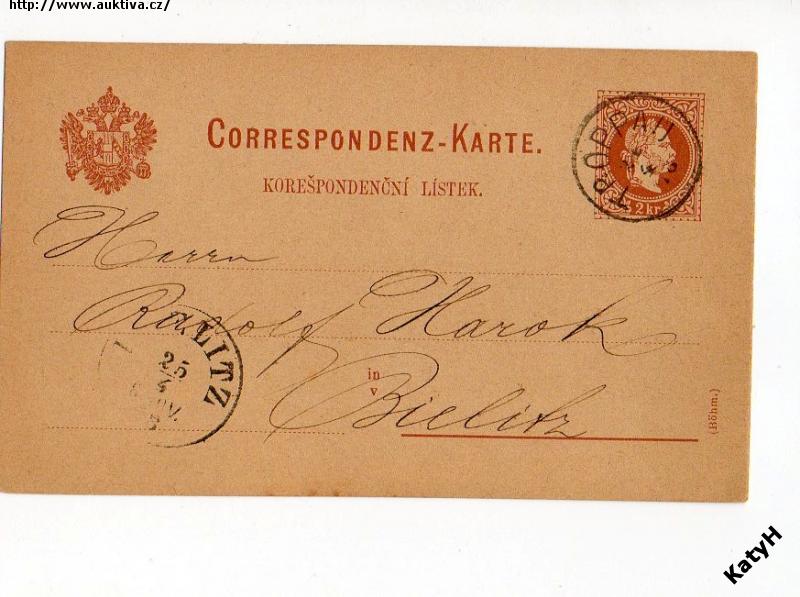 http://www.auktiva.cz/
CORRESPONDENZ-KARTE.
KOREŠPONDENČNÍ LÍSTEK.
TROPPAU
2 kr.
Herrn
Rudolf Harok
LITZ
25
in
v
Bielitz
(Böhm.)
KatyH